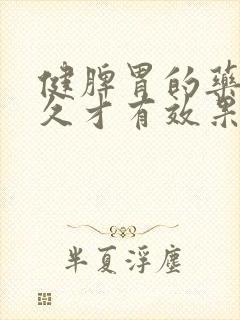 健脾胃的藥
久才有效果
半夏浮塵